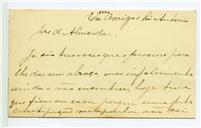 Exmo Amigo Snr António
José d'Almeida.
Já são tres vezes que procuro para
lhe dar um abraço mas infelizmente
ainda o não encontrei, hoje tive
que ficar em casa porque uma forte
constipação